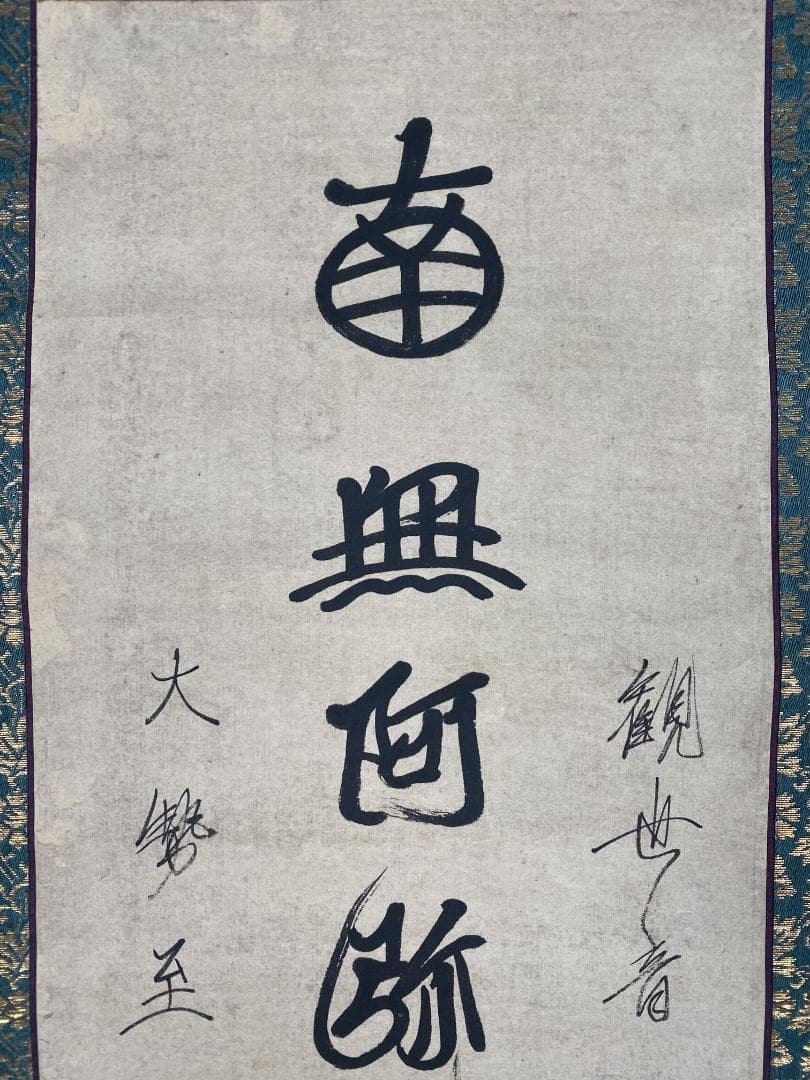 観世音
南無阿弥
大勢至